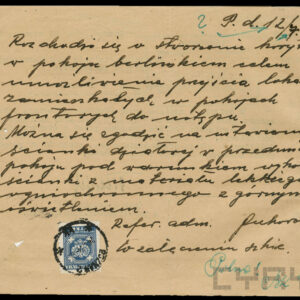 P. d. 12
Rozchodzi się o stworzenie koryt
w pokoju berlińskiem celem
umożliwienia przejścia loka
zamieszkałych w pokojach
frontowych do ustępu.
Można się zgodzić na ustawienie
ścianki działowej w przedmi
pokoju pod warunkiem wyko
ścianki z materiału lekkiego
ogniochronnego z górnym
oświetleniem.
Refer. adm.
W załączeniu szkic